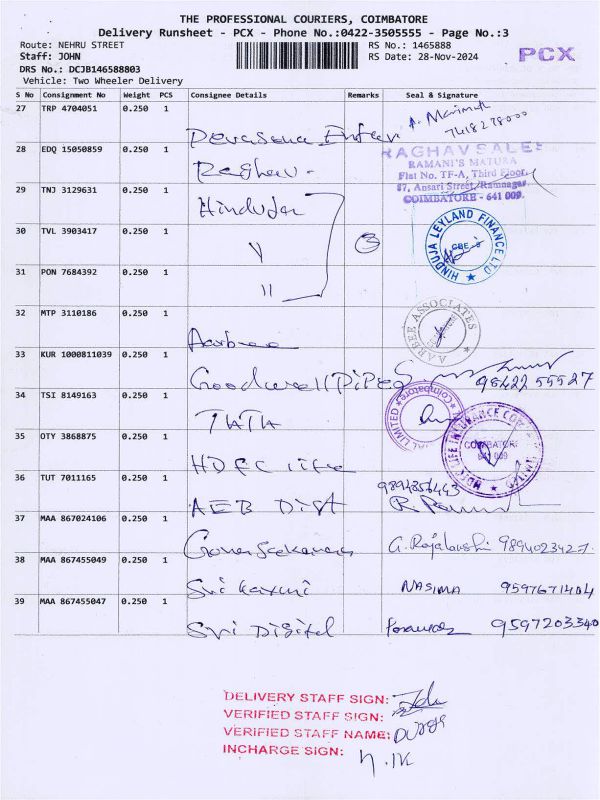 THE PROFESSIONAL COURIERS, COIMBATORE
Delivery Runsheet - PCX - Phone No.:0422-3505555 - Page No.:3
Route: NEHRU STREET
Staff: JOHN
DRS No.: DCJB146588803
Vehicle: Two Wheeler Delivery
RS No.: 1465888
RS Date: 28-Nov-2024
PCX
S No Consignment No Weight PCS Consignee Details Remarks Seal & Signature
27 TRP 4704051 0.250 1
28 EDQ 15050859 0.250 1 Raghav. RAGHAV SALES
RAMANI'S MATURA
Flat No. TF-A, Third Floor,
87, Ansari Street, Ramnagar,
COIMBATORE - 641 009.
29 TNJ 3129631 0.250 1 Hinduja
30 TVL 3903417 0.250 1 " 3 HINDUJA LEYLAND FINANCE LTD
CBE
31 PON 7684392 0.250 1 "
32 MTP 3110186 0.250 1 Aarbee AARBEE ASSOCIATES
33 KUR 1000811039 0.250 1 Goodwell Pipes 98422 55527
34 TSI 8149163 0.250 1 TATA LIMITED Coimbatore
35 OTY 3868875 0.250 1 HDFC life HDFC LIFE INSURANCE COMPANY LIMITED
COIMBATORE
641 009
36 TUT 7011165 0.250 1 AEB Dist 9894856443
37 MAA 867024106 0.250 1 G. Rajalakshi 9894023427.
38 MAA 867455049 0.250 1 NASIMA 9597671404
39 MAA 867455047 0.250 1 Sri Digital 9597203340
DELIVERY STAFF SIGN:
VERIFIED STAFF SIGN:
VERIFIED STAFF NAME:
INCHARGE SIGN: